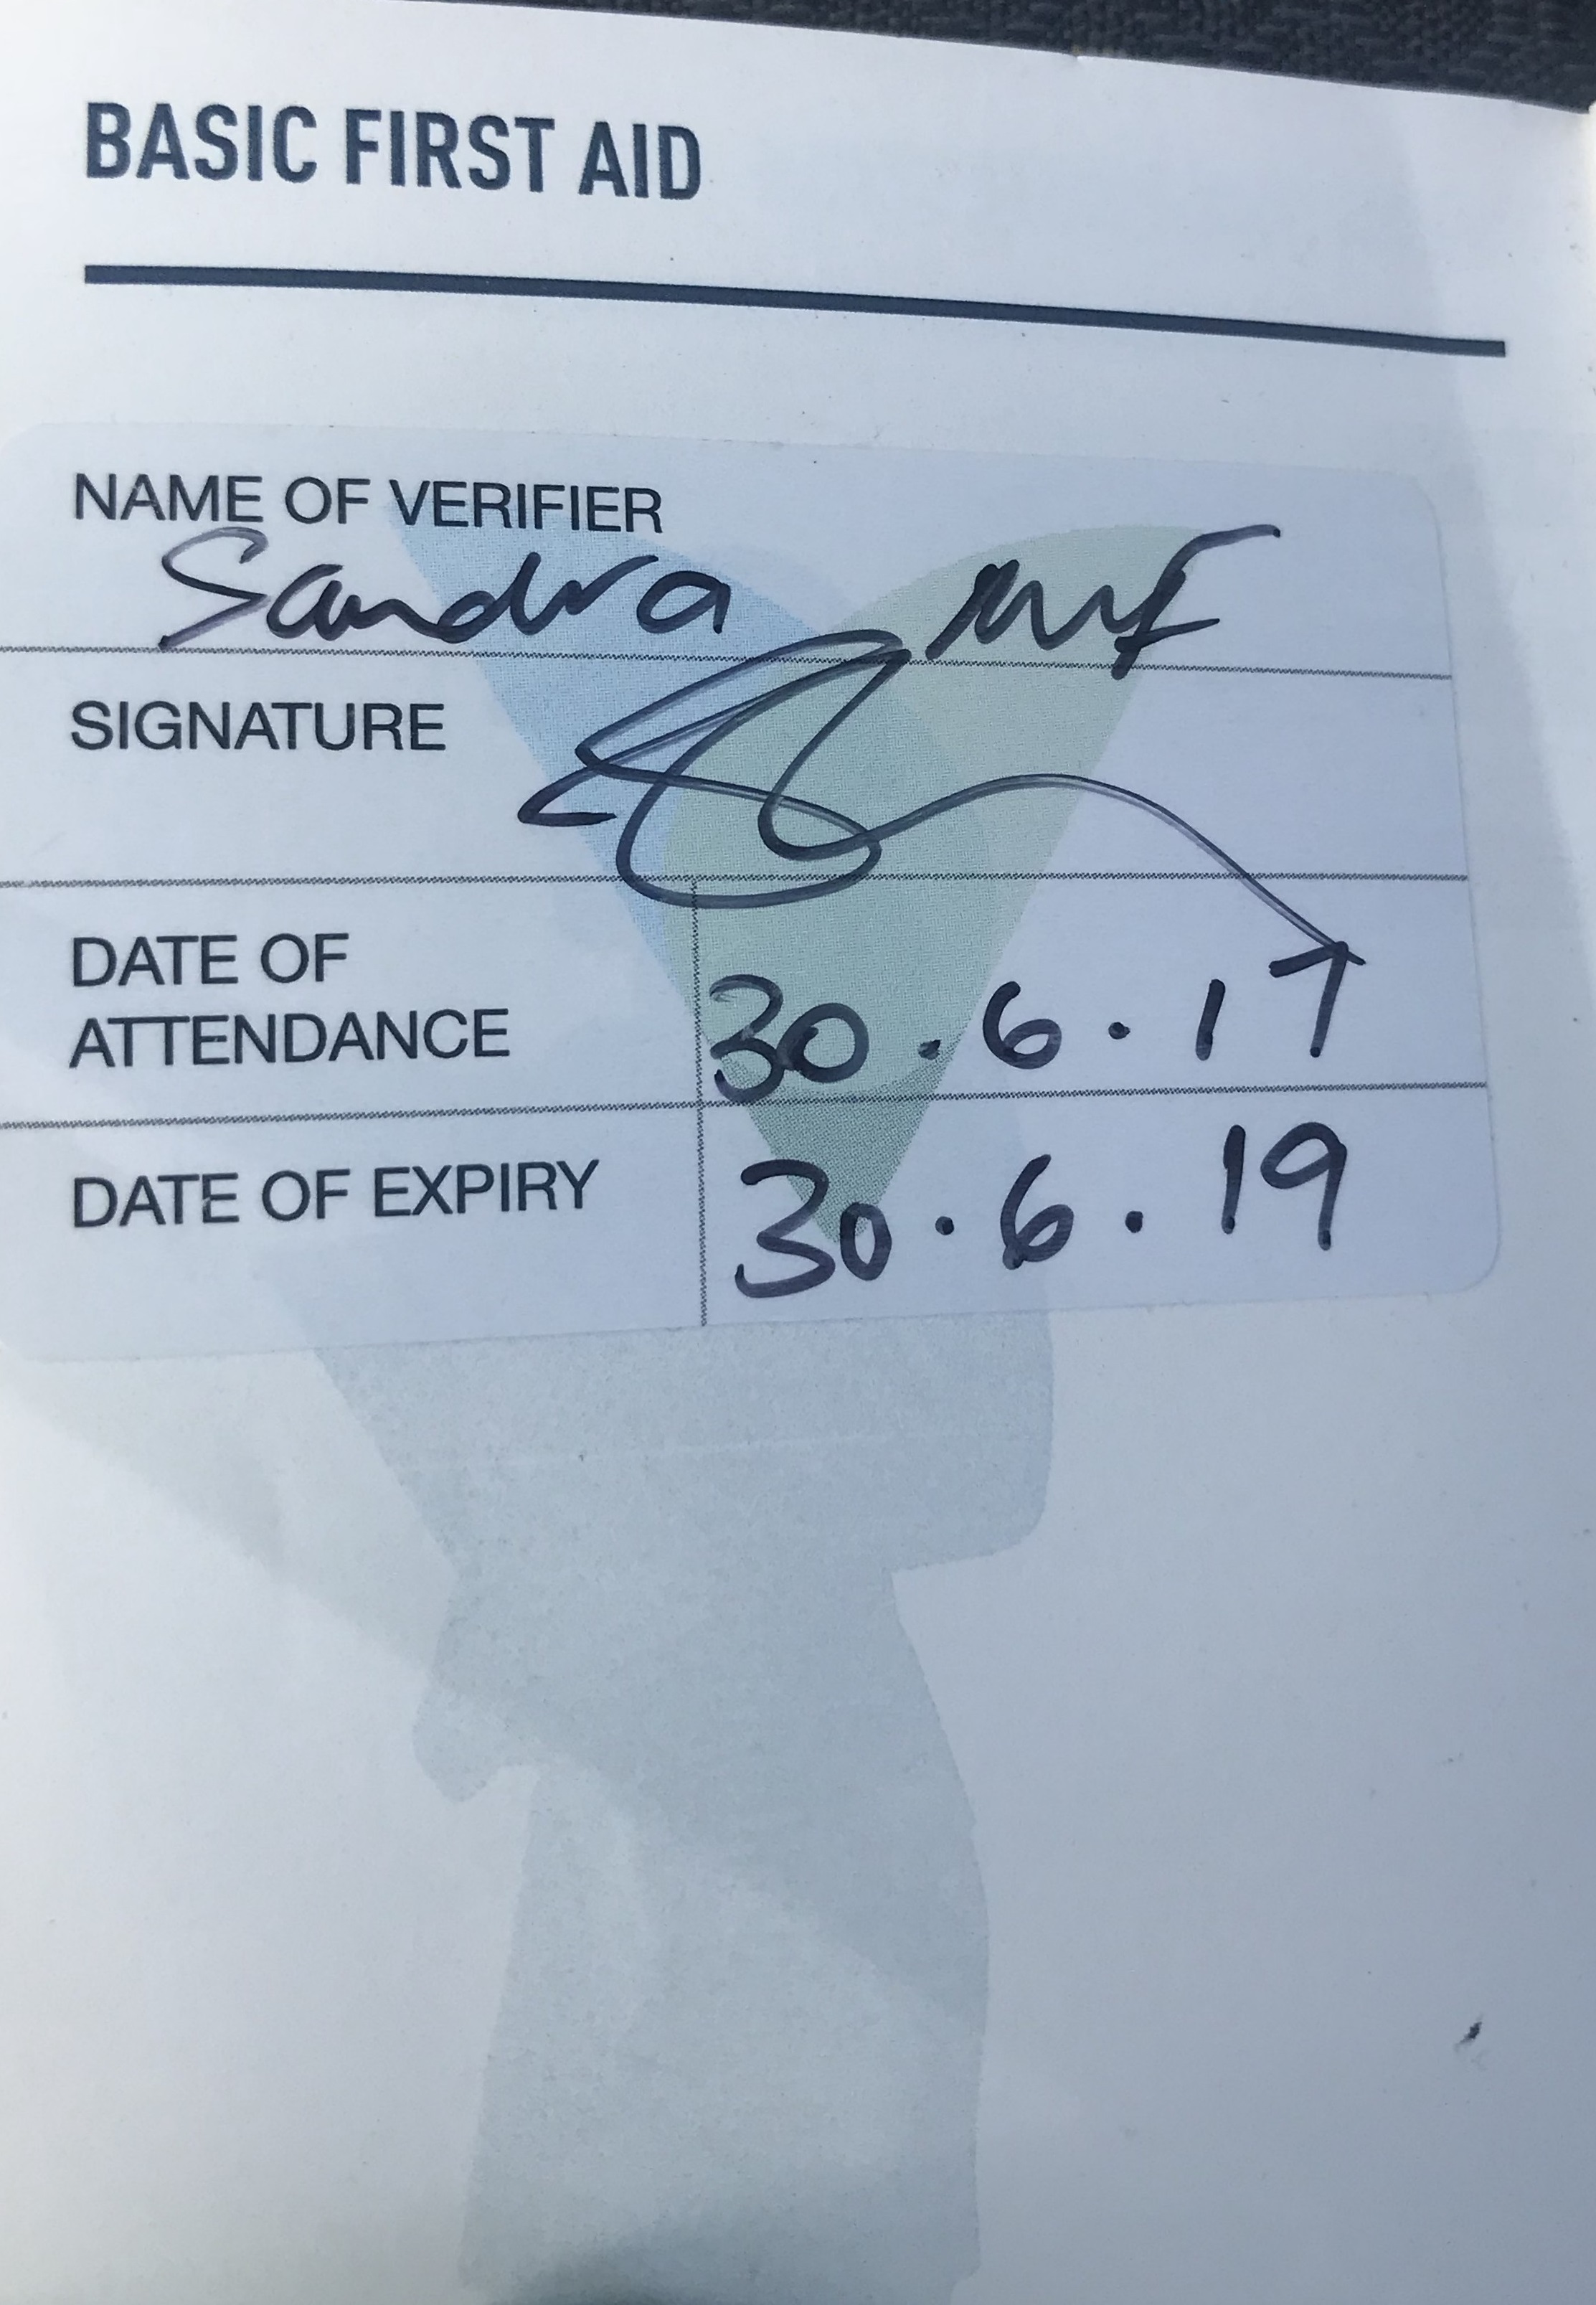 BASIC FIRST AID
NAME OF VERIFIER
Sandra
SIGNATURE
DATE OF
ATTENDANCE
30.6.17
DATE OF EXPIRY
30.6.19